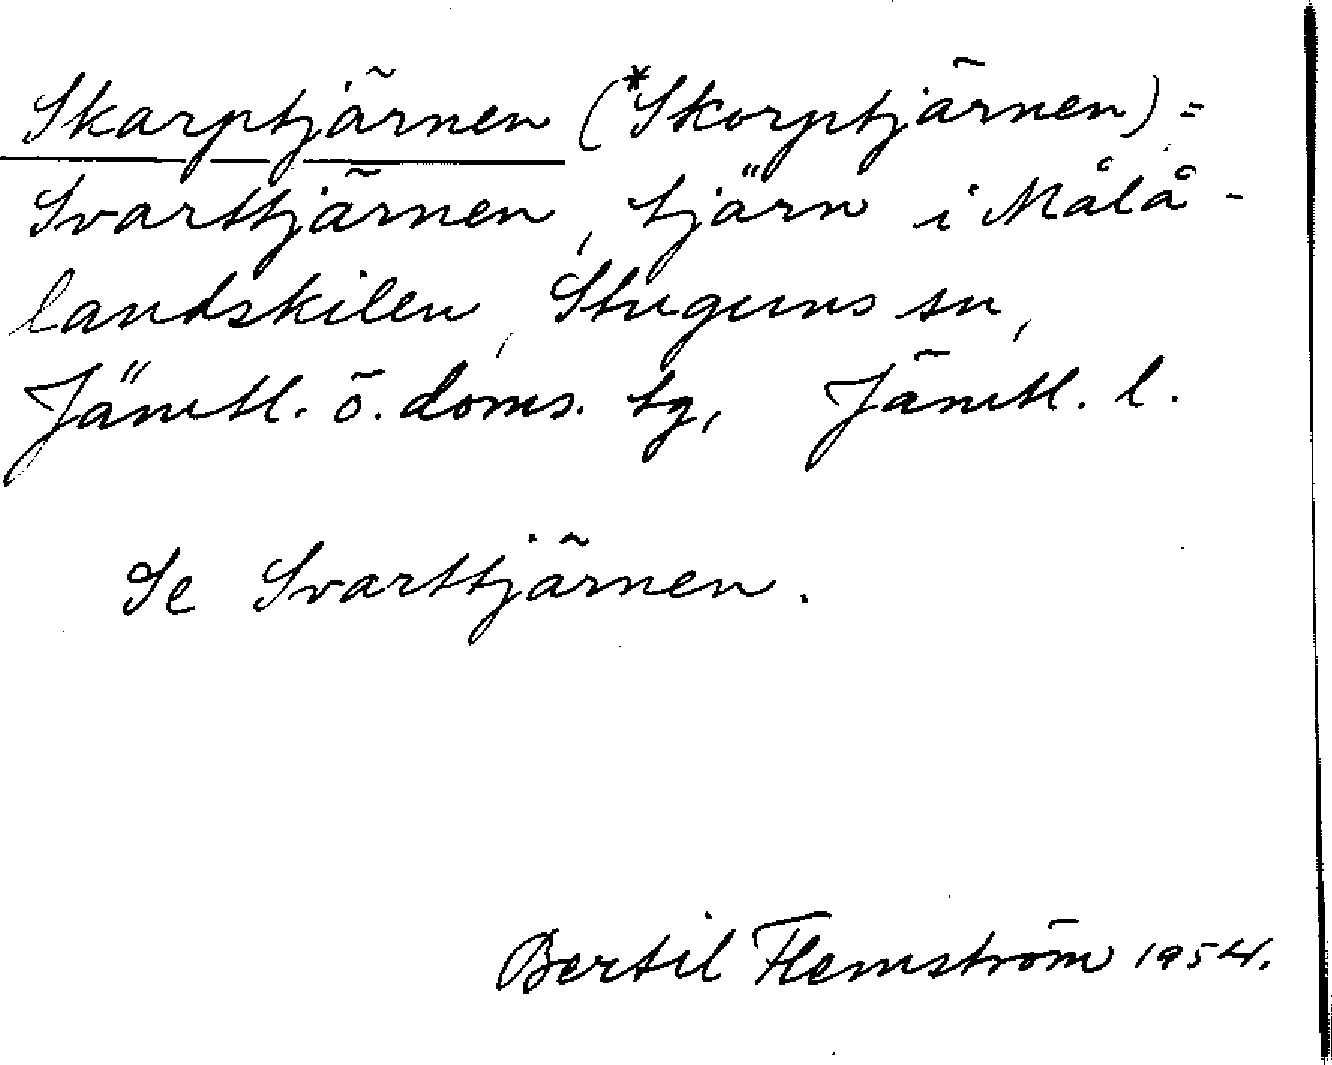 Skarptjärnen (*Skorptjärnen) =
Svarttjärnen, tjärn i Målå-
landskilen, Stuguns sn,
Jämtl. ö. doms. tg, Jämtl. l.
Se Svarttjärnen.
Bertil Flemström 1954.